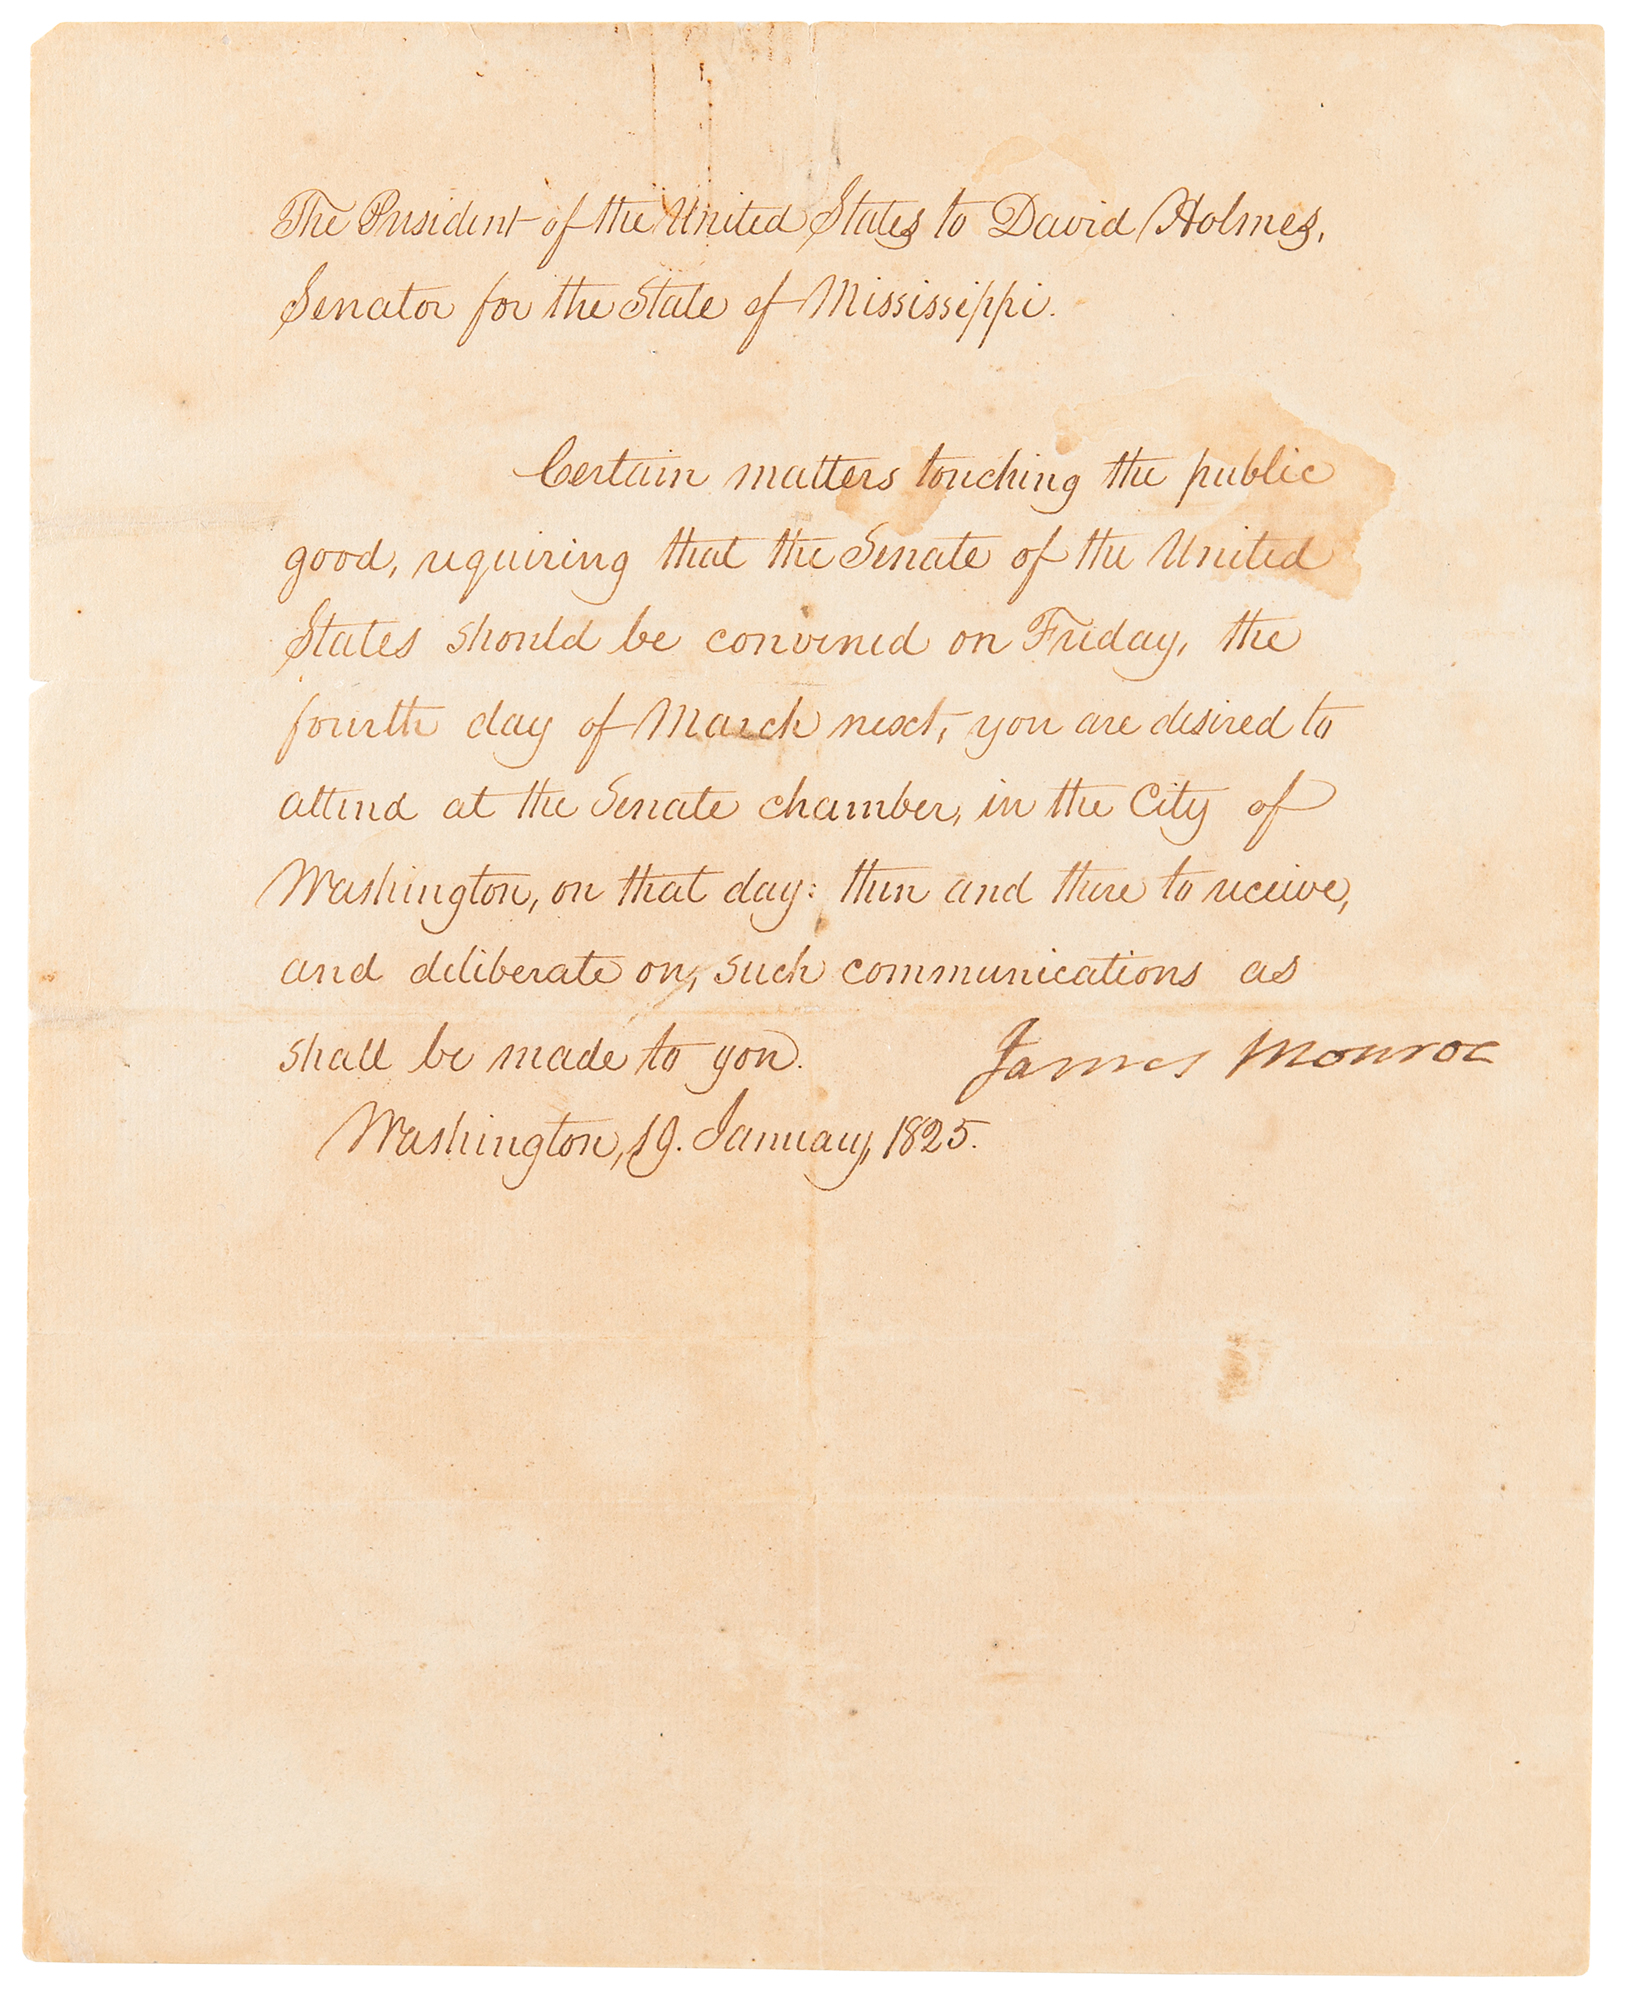 The President of the United States to David Holmes,
Senator for the State of Mississippi.
Certain matters touching the public
good, requiring that the Senate of the United
States should be convened on Friday, the
fourth day of March next, you are desired to
attend at the Senate chamber, in the City of
Washington, on that day: then and there to receive,
and deliberate on, such communications as
shall be made to you. James Monroe
Washington, 19. January, 1825.